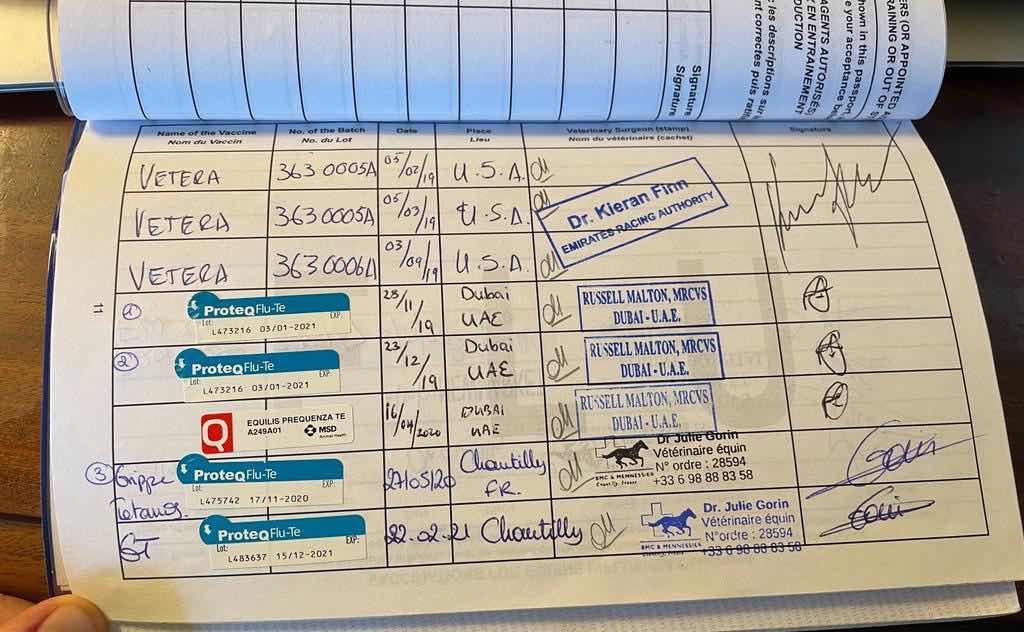 Signature
Signature
ERS (OR APPOINTED
RAINING OR OUT OF
hown in this passpor
e your acceptance b
AGENTS AUTORISÉS)
EN ENTRAINEMENT
DUCTION
les descriptions sur
nt correctes puis rati
Name of the Vaccine
Nom du Vaccin
No. of the Batch
No. du Lot
Date
Place
Lieu
Veterinary Surgeon (stamp)
Nom du vétérinaire (cachet)
Signature
VETERA 363 0005A 05/02/19 U.S.A.
VETERA 363 0005A 05/03/19 U.S.A.
Dr. Kieran Finn
EMIRATES RACING AUTHORITY
VETERA 363 0006A 03/09/19 U.S.A.
11
1 ProteqFlu-Te
Lot: EXP:
L473216 03/01-2021
28/11/19 Dubai
UAE
RUSSELL MALTON, MRCVS
DUBAI - U.A.E.
2 ProteqFlu-Te
Lot: EXP:
L473216 03/01-2021
23/12/19 Dubai
UAE
RUSSELL MALTON, MRCVS
DUBAI - U.A.E.
Q EQUILIS PREQUENZA TE
A249A01 MSD
Animal Health
16/04/2020 DUBAI
UAE
RUSSELL MALTON, MRCVS
DUBAI - U.A.E.
3 Grippe
Tetanos.
ProteqFlu-Te
Lot: EXP:
L475742 17/11-2020
27/05/20 Chantilly
FR.
BMC & MENNESSIER
Chantilly, France
Dr Julie Gorin
Vétérinaire équin
N° ordre : 28594
+33 6 98 88 83 58
Gorin
GT ProteqFlu-Te
Lot: EXP:
L483637 15/12-2021
22.02.21 Chantilly
BMC & MENNESSIER
Dr. Julie Gorin
Vétérinaire équin
N°ordre : 28594
+33 6 98 88 83 58
Gorin